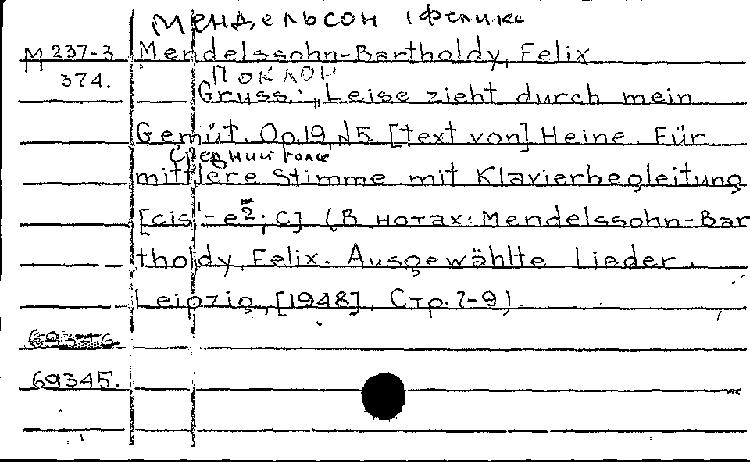 Мендельсон (Феликс
М 237-3 Mendelssohn-Bartholdy, Felix
374. Поклон
Gruss: „Leise zieht durch mein
Gemüt. Op.19, N5. [text von] Heine. Für
Средний голос
mittlere Stimme mit Klavierbegleitung
[cis¹-e²; C] (В нотах: Mendelssohn-Bar
tholdy, Felix. Ausgewählte Lieder.
Leipzig, [1948]. Стр. 7-9)
69345.